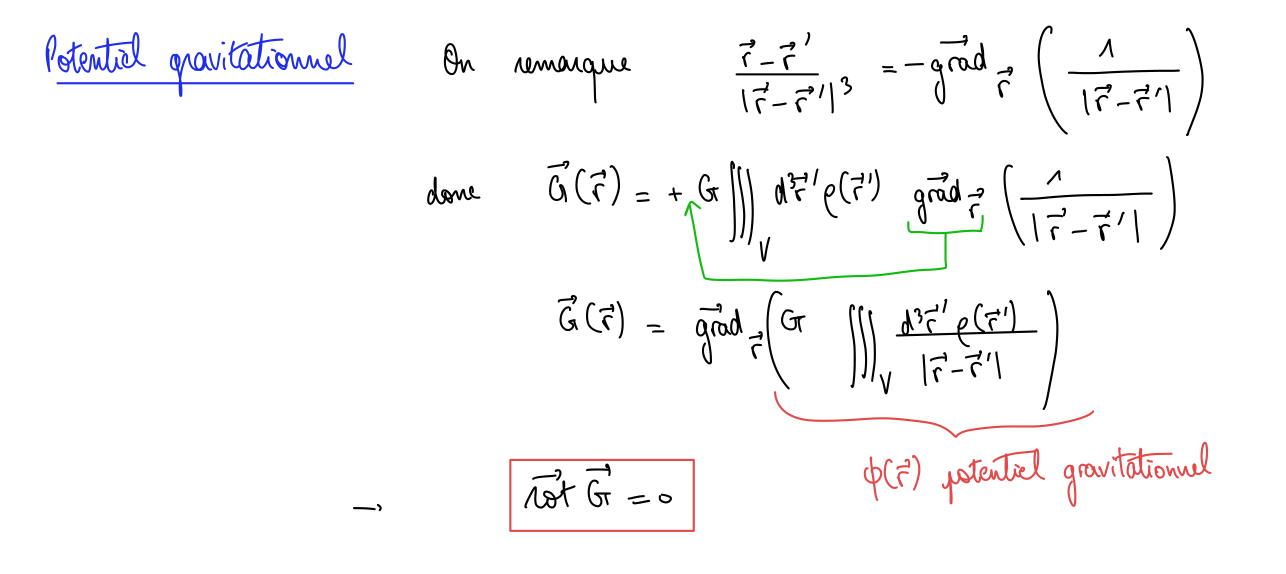 Potentiel gravitationnel On remarque $\frac{\vec{r}-\vec{r}'}{|\vec{r}-\vec{r}'|^3} = -\overrightarrow{grad}_{\vec{r}} \left( \frac{1}{|\vec{r}-\vec{r}'|} \right)$
donc $\vec{G}(\vec{r}) = + G \iiint_V d^3\vec{r}' \rho(\vec{r}') \overrightarrow{grad}_{\vec{r}} \left( \frac{1}{|\vec{r}-\vec{r}'|} \right)$
$\vec{G}(\vec{r}) = \overrightarrow{grad}_{\vec{r}} \left( G \iiint_V \frac{d^3\vec{r}' \rho(\vec{r}')}{|\vec{r}-\vec{r}'|} \right)$
$\phi(\vec{r})$ potentiel gravitationnel
→ $\overrightarrow{rot} \vec{G} = 0$